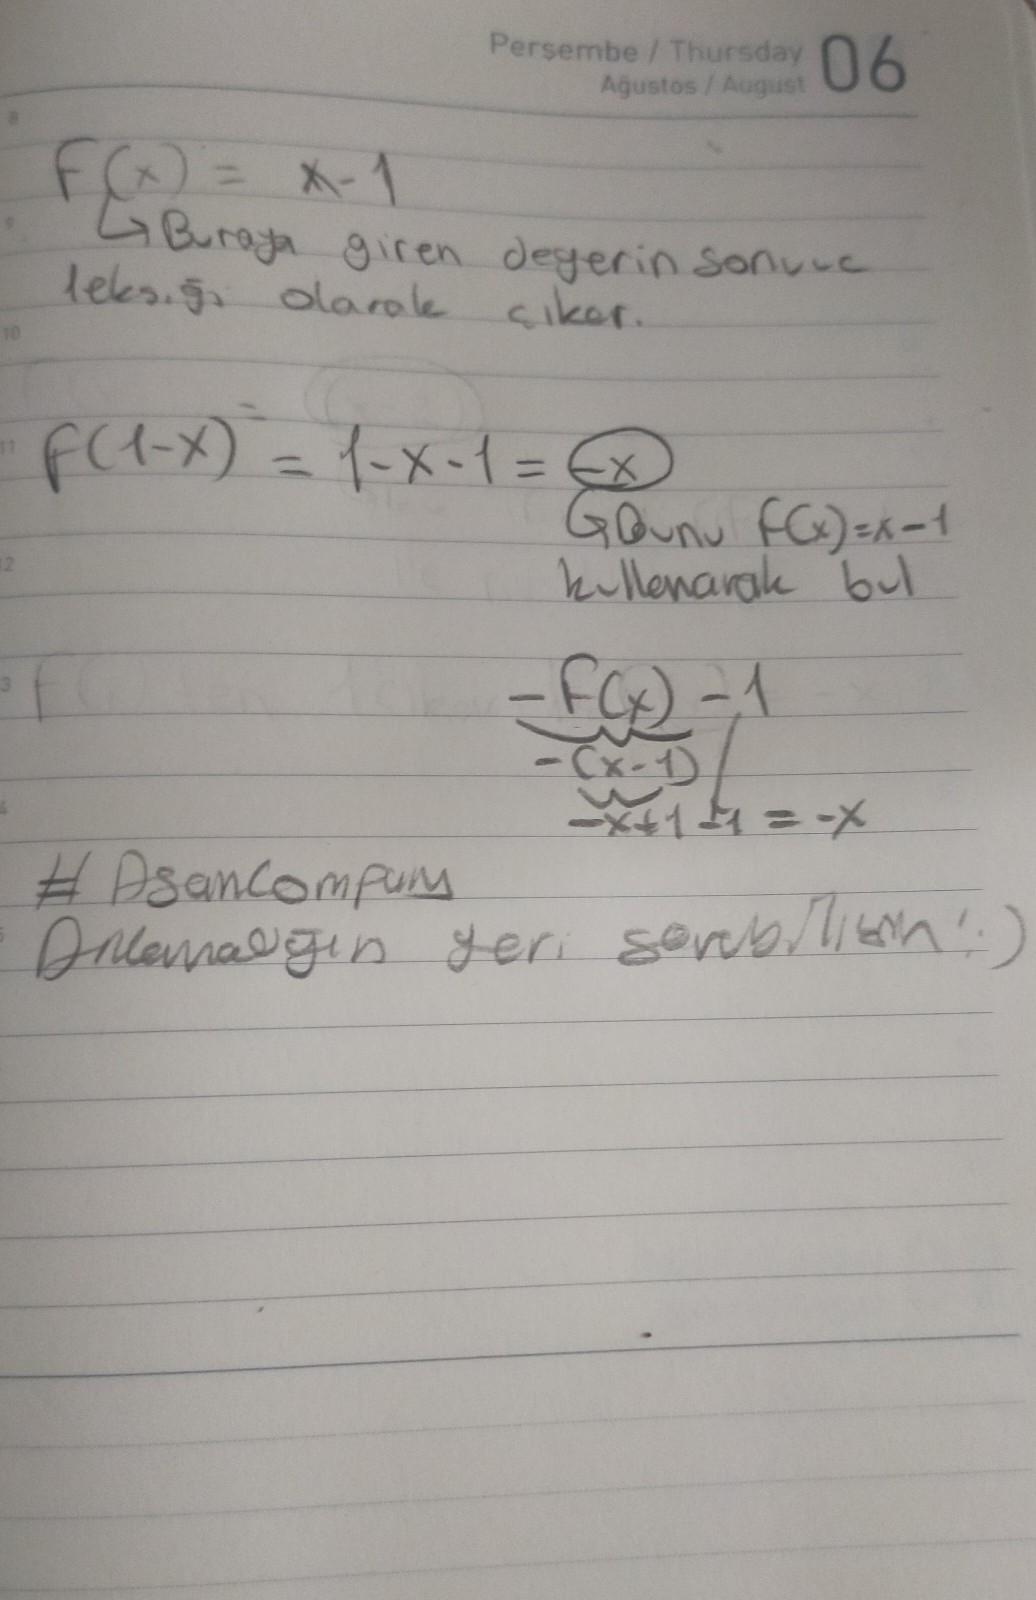 Perşembe / Thursday 06
Ağustos / August
8
F(x) = x-1
9
↳ Buraya giren değerin sonucu
1eksiği olarak çıkar.
10
11
F(1-x) = 1-x-1 = -x
↳ Bunu F(x)=x-1
12
kullanarak bul
3
-F(x) -1
-(x-1)
4
-x+1-1 = -x
# AsanCompany
5
Anlamadığın yeri sorabilirsin :)